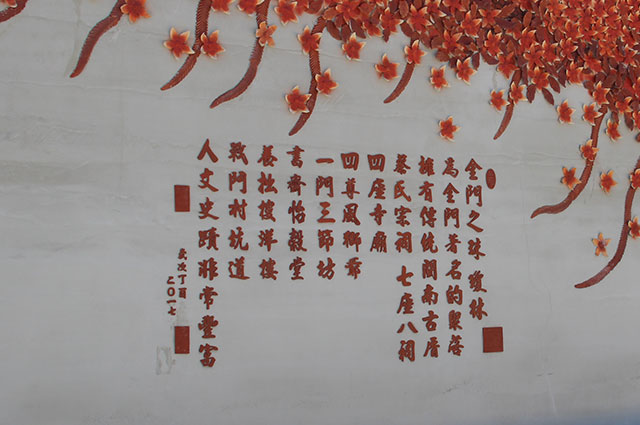 金門之珠 瓊林
為金門著名的聚落
雄有傳統閩南古厝
蔡氏宗祠 七座八祠
四座寺廟
四尊風獅爺
一門三節坊
書齋怡穀堂
養拙樓洋樓
戰鬥村坑道
人文史蹟非常豐富
歲次丁酉
二〇一七